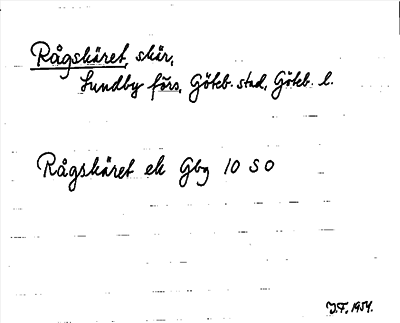 Rågskäret, skär,
Lundby förs. Göteb. stad, Göteb. l.
Rågskäret ek Gbg 10 SO
J.F. 1954.